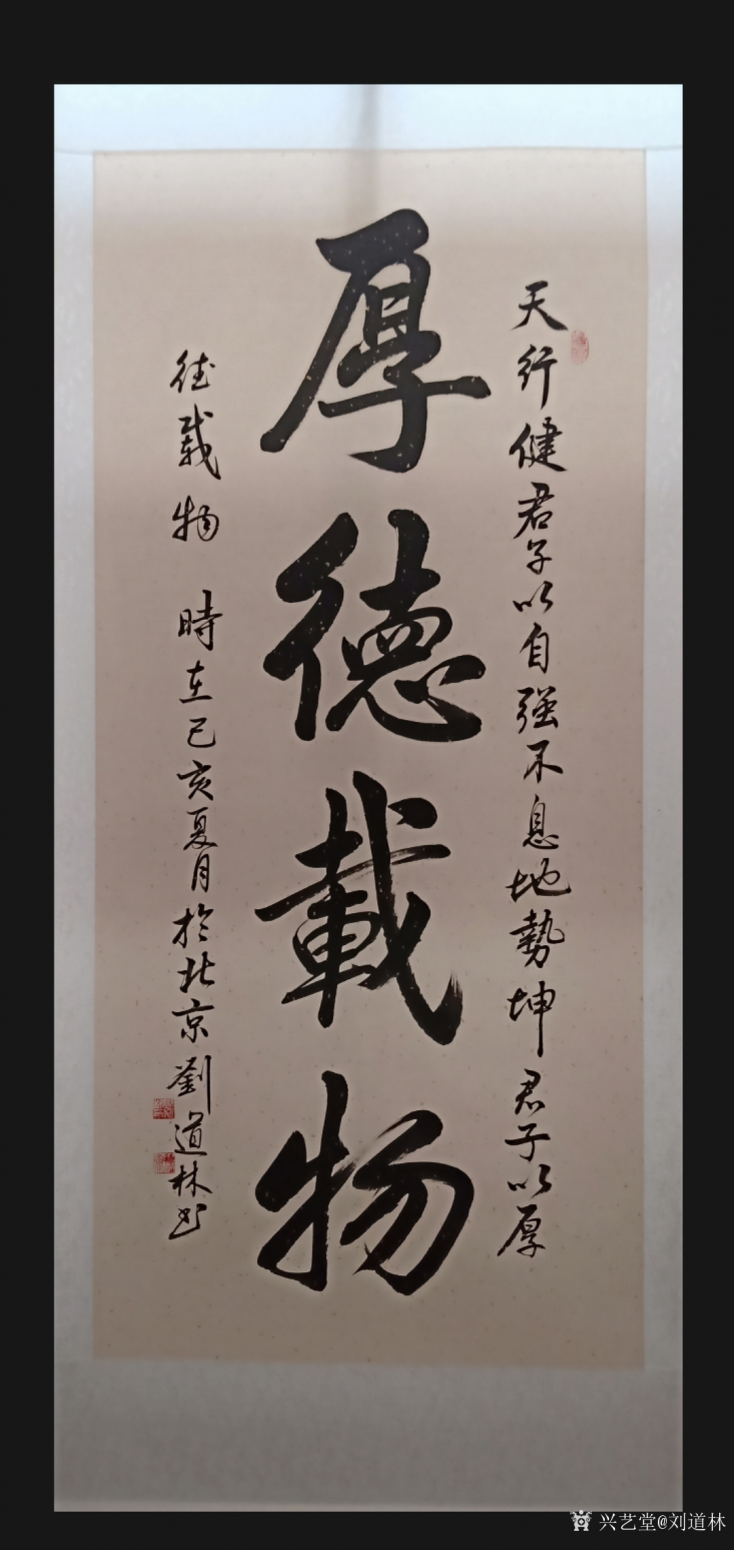 天行健君子以自强不息地勢坤君子以厚
厚德載物
德载物 時在己亥夏月於北京劉道林书
兴艺堂@刘道林